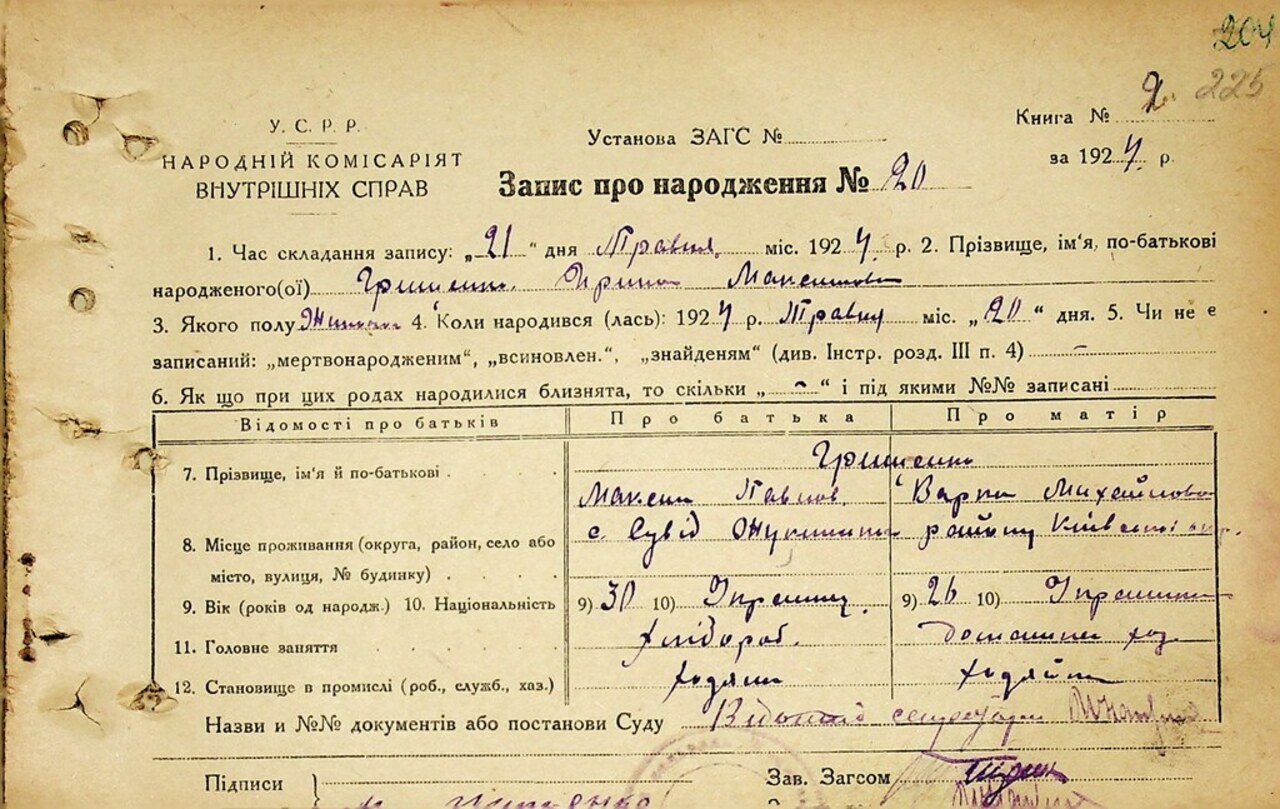 204
225
У. С. Р. Р.
НАРОДНІЙ КОМІСАРІЯТ
ВНУТРІШНІХ СПРАВ
Установа ЗАГС №
Книга № 2
за 1927 р.
Запис про народження № 20
1. Час складання запису: „21“ дня Травня міс. 1927 р. 2. Прізвище, ім'я, по-батькові
народженого(ої) Грищенко Ирина Максимовна
3. Якого полу 4. Коли народився (лась): 1927 р. Травня міс. „20“ дня. 5. Чи не є
записаний: „мертвонародженим“, „всиновлен.“, „знайденям“ (див. Інстр. розд. III п. 4) –
6. Як що при цих родах народилися близнята, то скільки „–“ і під якими №№ записані
Відомості про батьків Про батька Про матір
7. Прізвище, ім'я й по-батькові Грищенко
Максим Павлов. Варка Михайловна
8. Місце проживання (округа, район, село або с. Сувід району Київської окр.
місто, вулиця, № будинку)
9. Вік (років од народж.) 10. Національність 9) 30 10) Україниц. 9) 26 10) Українка
11. Головне заняття хлібороб. Домашнє хоз.
12. Становище в промислі (роб., служб., хаз.) хозяин хозяйка
Назви и №№ документів або постанови Суду
Підписи } Зав. Загсом